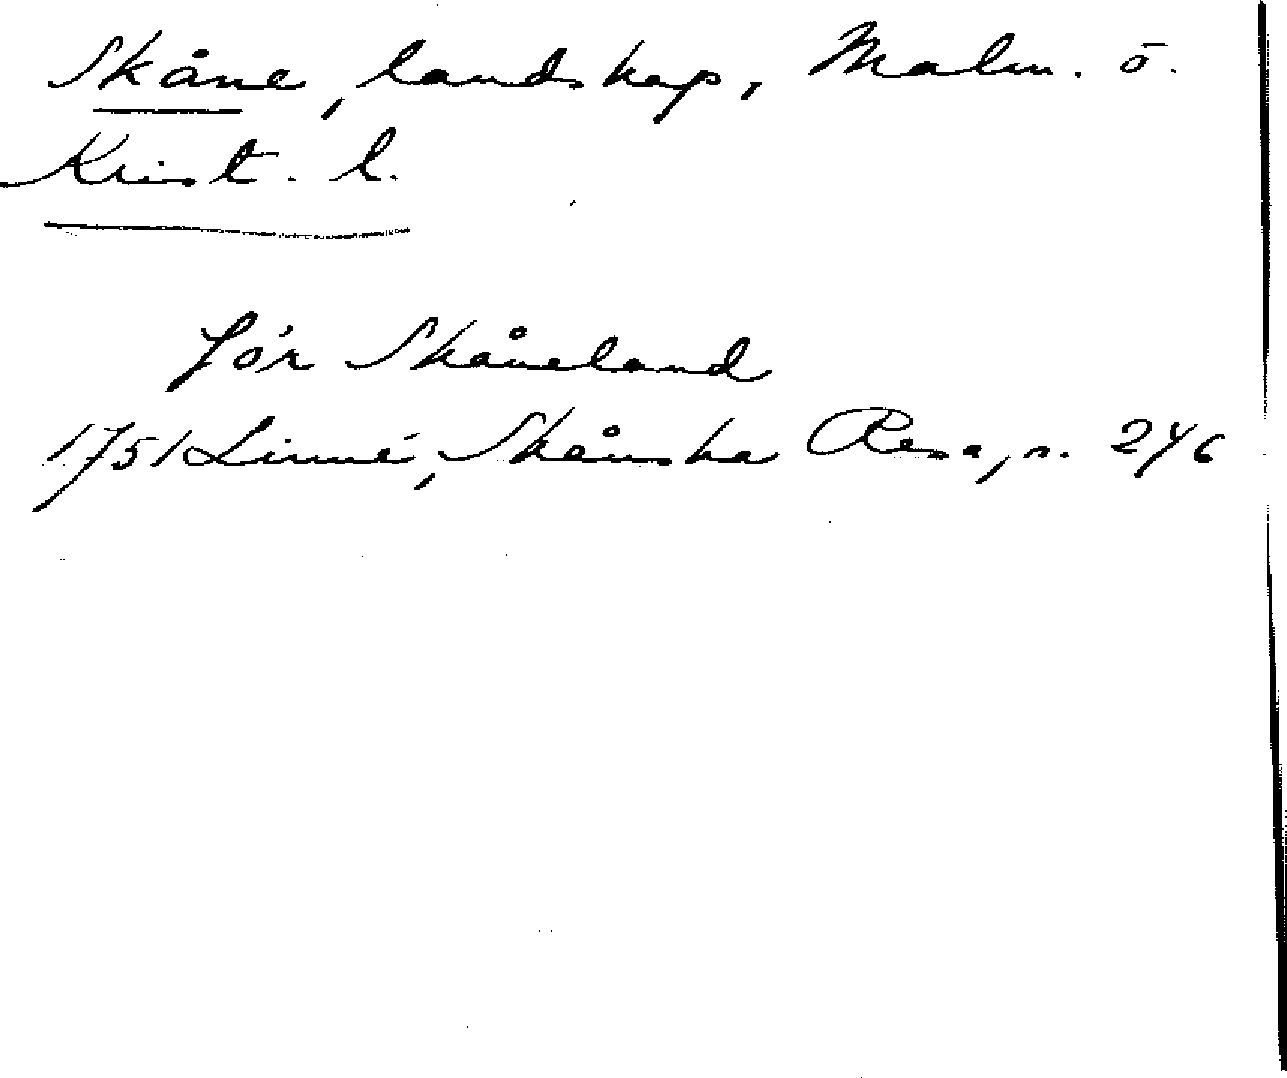 Skåne, landskap, Malm. o.
Krist. l.
för Skåneland
1751 Linné, Skånska Resa, s. 246